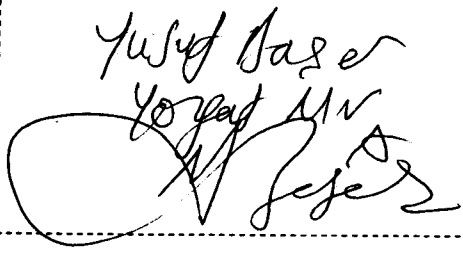 Yusuf Başer
Yozgat Mv